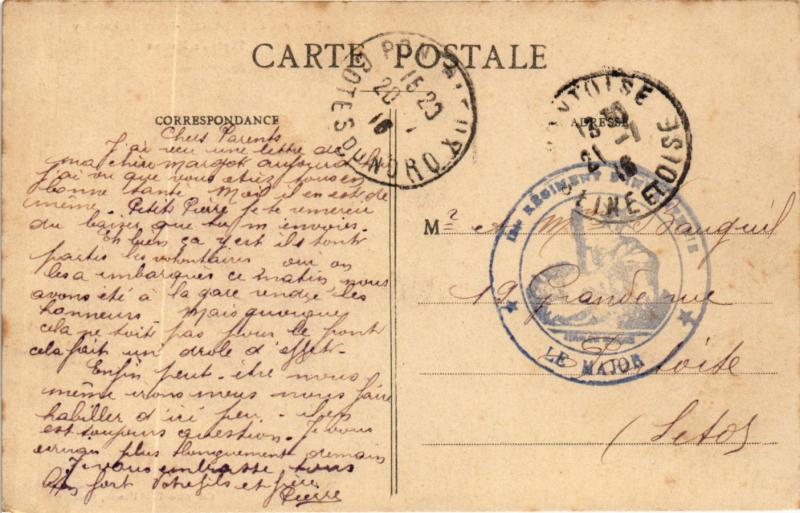 CARTE POSTALE
CORRESPONDANCE
ADRESSE
15-20
20-1
16
COTES DU NORD
13
21-1
16
SEINE ET OISE
RÉGIMENT
LE MAJOR
Chers Parents
J'ai reçu une lettre de
ma chère Margot aujourd'h
J'ai vu que vous étiez tous en
bonne santé Moi il en est de
même. Petit Pierre je te remercie
du baiser que tu m'envoies.
Eh bien ça y est ils sont
partis les volontaires oui on
les a embarqués ce matin nous
avons été à la gare rendre les
honneurs Mais quoique
cela ne soit pas pour le front
cela fait un drole d'effet.
Enfin peut-être nous
même irons nous nous faire
habiller d'ici peu.
est toujours question. Je vous
écrirai plus longuement demain
Je vous embrasse tous
fort Votre fils et frère
Pierre
Mr
19 Grande rue
(S et O)